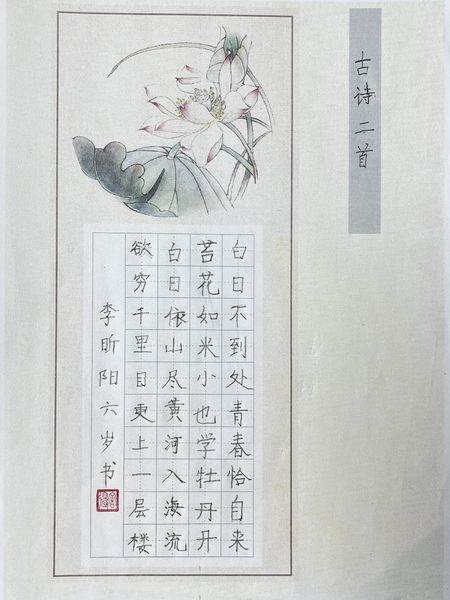 古诗二首
白日不到处青春恰自来
苔花如米小也学牡丹开
白日依山尽黄河入海流
欲穷千里目更上一层楼
李昕阳六岁书